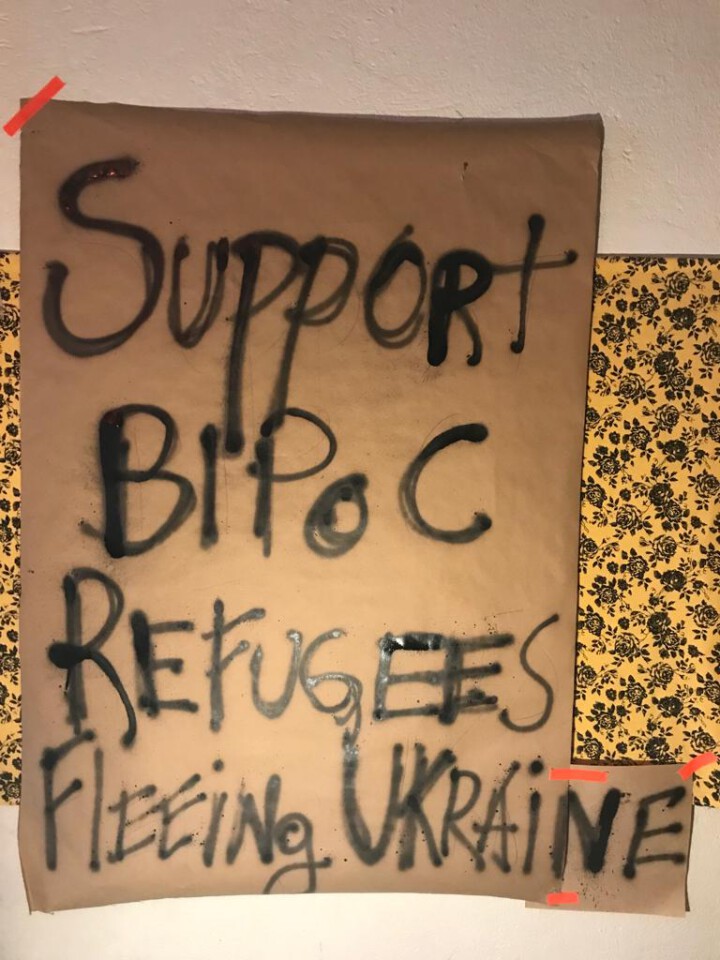 Support
BIPoC
REFUGEES
FlEEiNg UKRAiNE